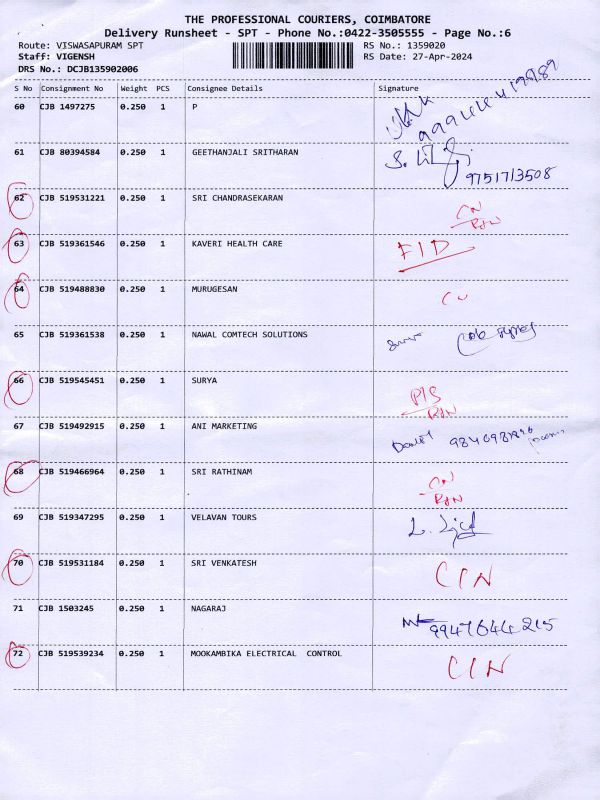 THE PROFESSIONAL COURIERS, COIMBATORE
Delivery Runsheet - SPT - Phone No.:0422-3505555 - Page No.:6
Route: VISWASAPURAM SPT RS No.: 1359020
Staff: VIGENSH RS Date: 27-Apr-2024
DRS No.: DCJB135902006
S No Consignment No Weight PCS Consignee Details Signature
60 CJB 1497275 0.250 1 P
61 CJB 80394584 0.250 1 GEETHANJALI SRITHARAN
9751713508
62 CJB 519531221 0.250 1 SRI CHANDRASEKARAN
63 CJB 519361546 0.250 1 KAVERI HEALTH CARE FID
64 CJB 519488830 0.250 1 MURUGESAN
65 CJB 519361538 0.250 1 NAWAL COMTECH SOLUTIONS
66 CJB 519545451 0.250 1 SURYA
67 CJB 519492915 0.250 1 ANI MARKETING
68 CJB 519466964 0.250 1 SRI RATHINAM
69 CJB 519347295 0.250 1 VELAVAN TOURS
70 CJB 519531184 0.250 1 SRI VENKATESH CIN
71 CJB 1503245 0.250 1 NAGARAJ
72 CJB 519539234 0.250 1 MOOKAMBIKA ELECTRICAL CONTROL CIN